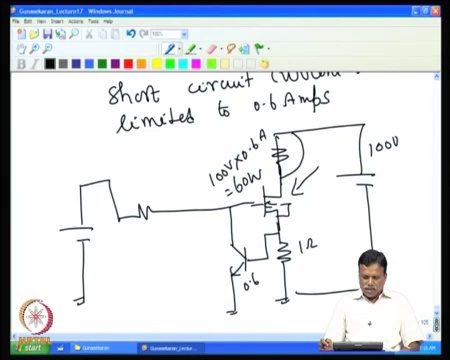 Gunasekaran_Lecture17 - Windows Journal
File Edit View Insert Actions Tools Help
100%
B I
short circuit
limited to 0.6 Amps
100V×0.6A
=60W
100V
1Ω
0.6
start
Gunasekaran
Gunasekaran_Lectu...